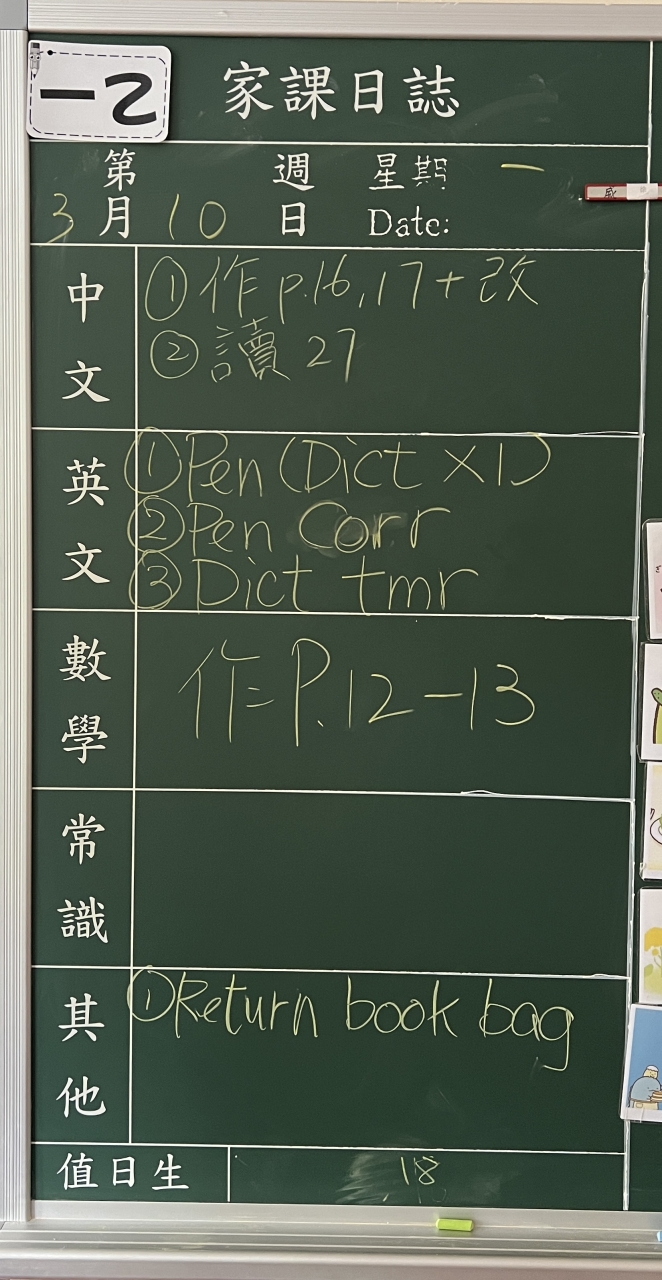 一乙
家課日誌
第 週 星期 一
3 月 10 日 Date:
中文
① 作 p.16, 17 + 改
② 讀 27
英文
① Pen (Dict ×1)
② Pen Corr
③ Dict tmr
數學
作= P.12-13
常識
其他
① Return book bag
值日生 18